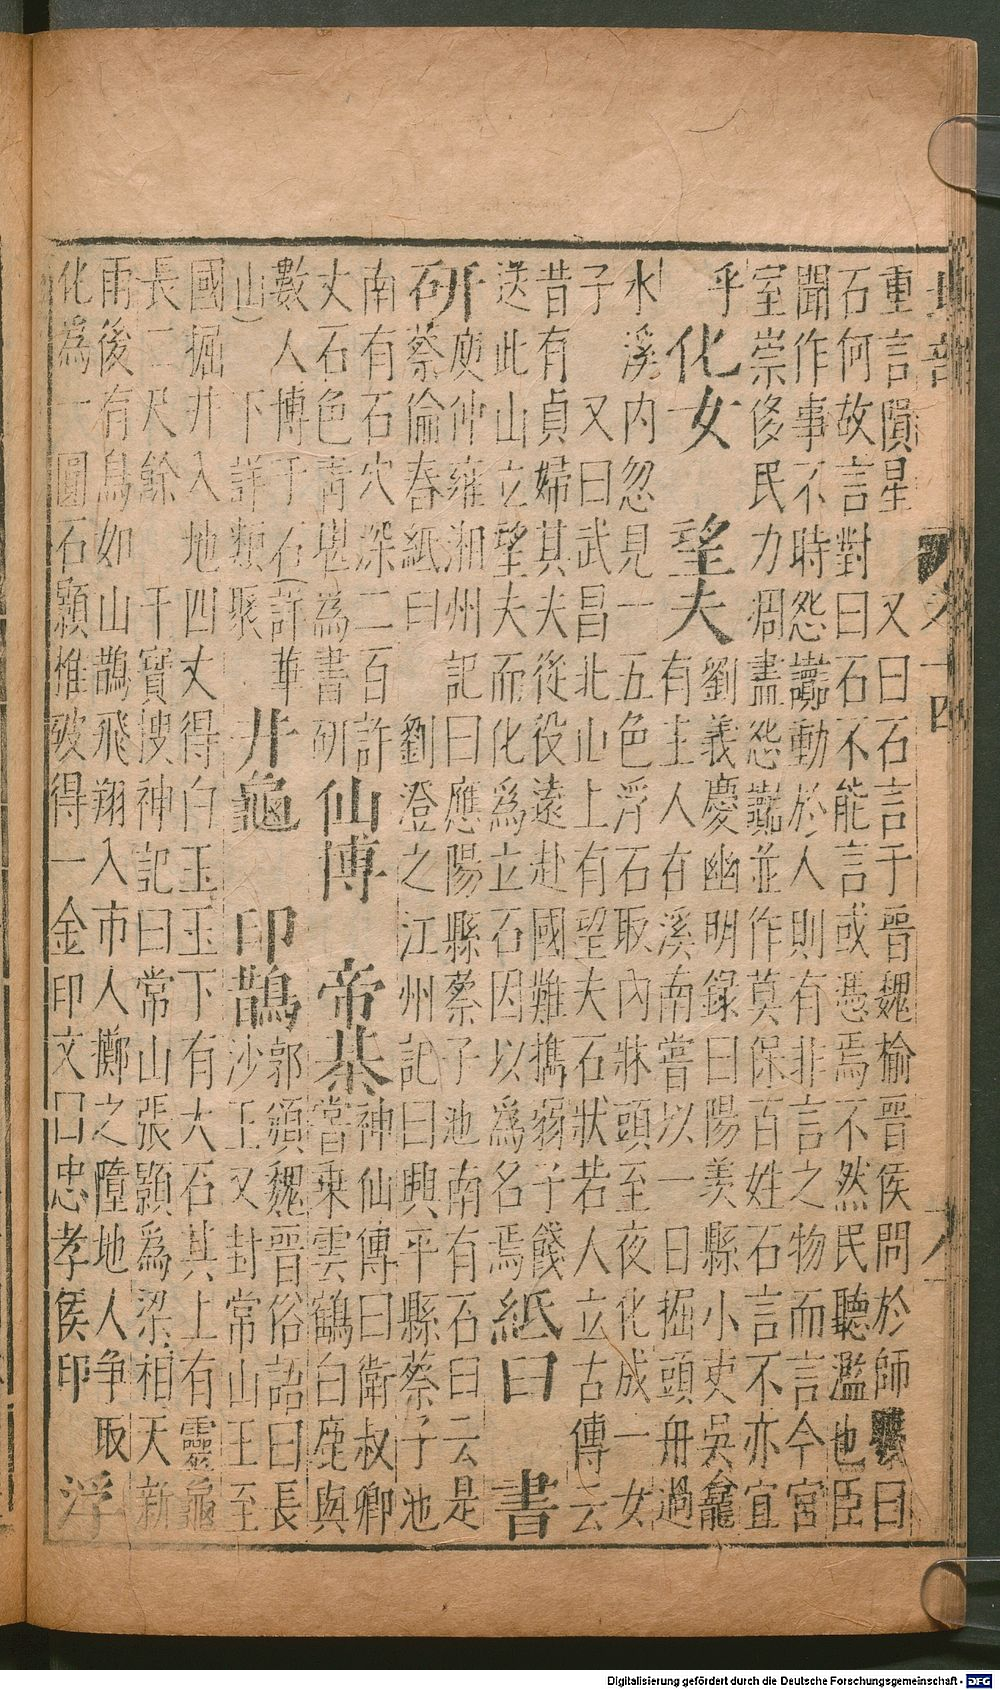 地部 卷十四 九
重言隕星 又曰石言于晉魏榆晉侯問於師曠曰
石何故言對曰石不能言或憑焉不然民聽濫也臣
聞作事不時怨讟動於人則有非言之物而言今宮
室崇侈民力凋盡怨讟並作莫保百姓石言不亦宜
乎
化女 望夫
劉義慶幽明錄曰陽羨縣小吏吳龕
有主人在溪南嘗以一日掘頭舟過
水溪內忽見一五色浮石取內牀頭至夜化成一女
子 又曰武昌北山上有望夫石狀若人立古傳云
昔有貞婦其夫從役遠赴國難攜弱子餞
送此山立望夫而化為立石因以為名焉
紙臼 書
研
庾仲雍湘州記曰應陽縣蔡子池南有石臼云是
蔡倫舂紙臼 劉澄之江州記曰興平縣蔡子池
南有石穴深二百許
丈石色青堪為書研
仙博 帝棊
神仙傳曰衛叔卿
嘗乘雲鶴白鹿與
數人博于石(許華
山) 下詳類聚
井龜 印鵲
郭頒魏晉俗語曰長
沙王乂封常山王至
國掘井入地四丈得白玉玉下有大石其上有靈龜
長二尺餘 干寶搜神記曰常山張顥為梁相天新
雨後有鳥如山鵲飛翔入市人擲之墮地人争取
化為一圓石顥惟破得一金印文曰忠孝侯印
浮
Digitalisierung gefördert durch die Deutsche Forschungsgemeinschaft - DFG